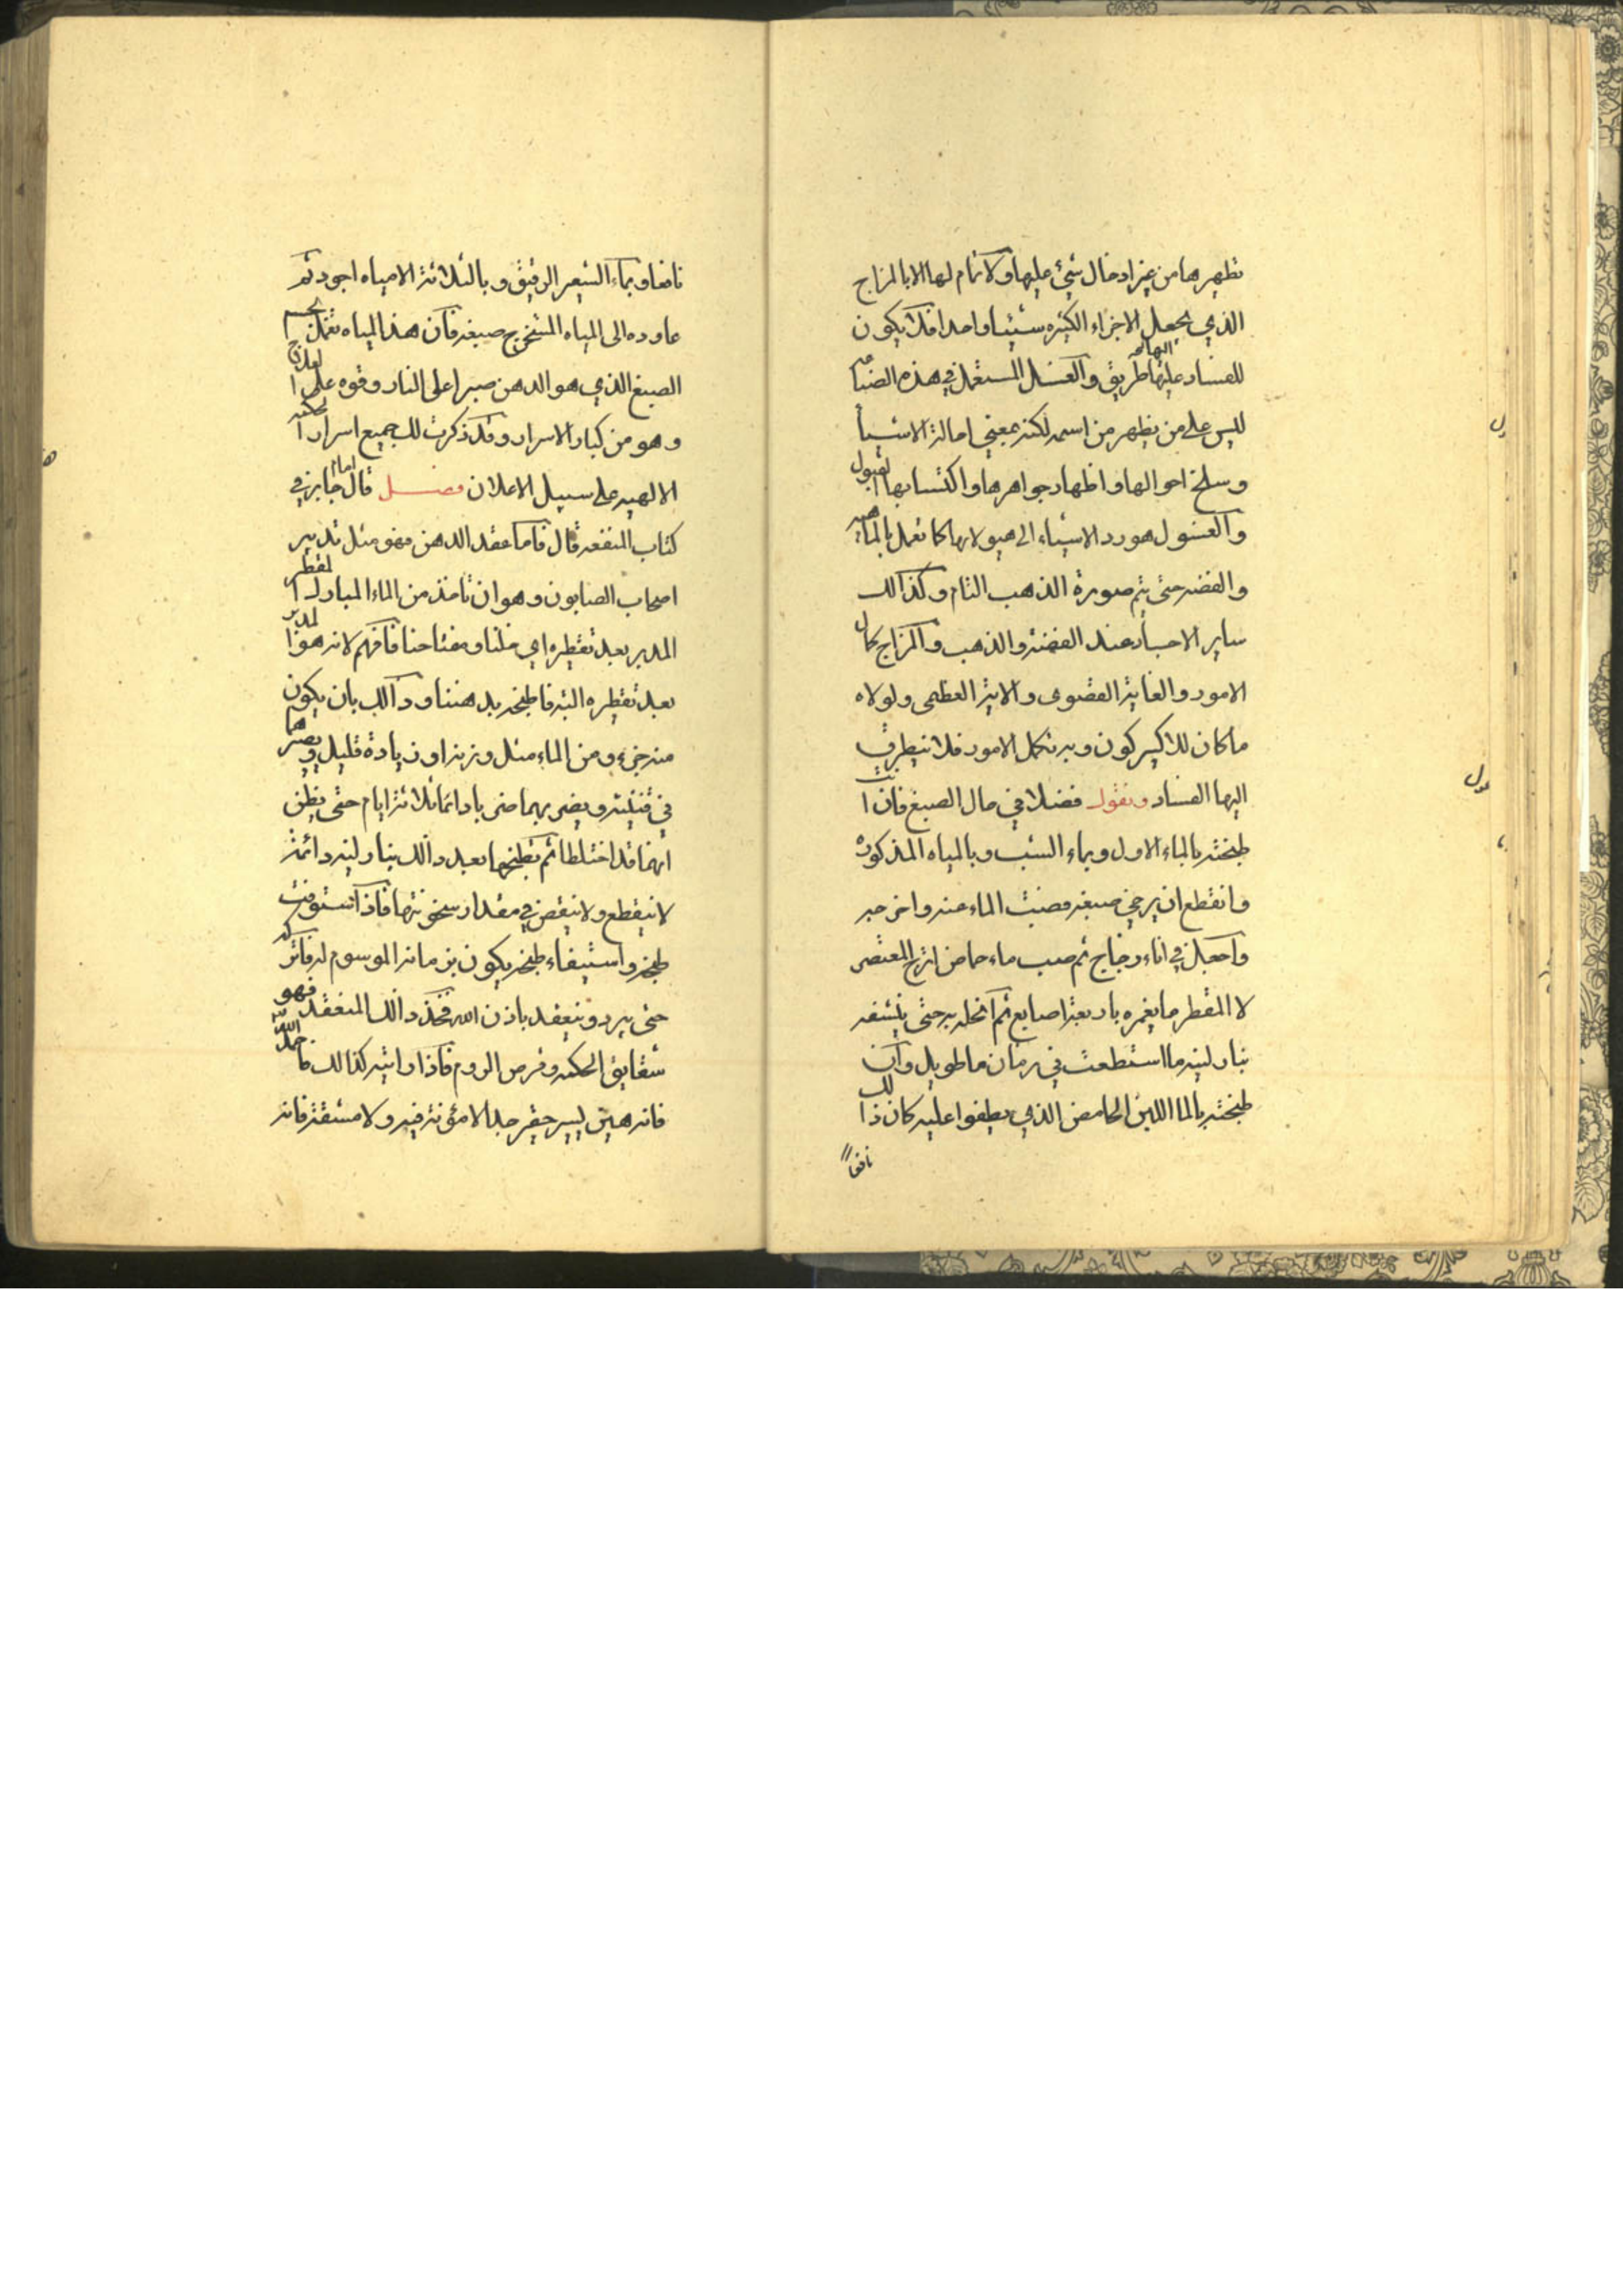 تطهيرها من غير ادخال شيئ عليها ولا تمام لها الا بالمزاج
الذي يجعل الاجزاء الكثيره شيئا واحدا فلا يكون
للفساد عليها طريق والغسل المستعمل في هذه الصنا
ليس على من يظهر من اسمه لكنه بمعنى امالة الاشيأ
وسلخ احوالها واظهار جواهرها واكتسابها القبول
والغسول هو رد الاشياء الى هيولاتها كما تعمل بالماهية
والفضه حتى يتم صورة الذهب التام وكذالك
ساير الاجساد عند الفضة والذهب والمزاج كمال
الامور والغاية القصوى والاية العظمى ولولاه
ما كان للاكسير كون وبه تكمل الامور فلا يتطرق
اليها الفساد ونقول فضلا في حال الصبغ فان ا
طبخته بالماء الاول وبماء الشب وبالمياه المذكوره
وانقطع ان يرخي صبغه فصبت الماء عنه واخرجه
واجعله في اناء زجاج ثم صب ماء حماض اترج المعتصر
لا المقطر ما يغمره باربعة اصابع ثم انخله به حتى ينشفه
بنار لينه ما استطعت في زمان ما طويل وان
طبخته بالماء اللبن الحامض الذي يطفوا عليه كان ذالك
نافعاً
نافعا وبماء الشعير الرقيق وبالثلاثة الامياه اجود ثم
عاوده الى المياه المستخرج صبغه فان هذا المياه تعمل الجسم
الصبغ الذي هو الدهن صبرا على النار وقوه على العلاج
وهو من كبار الاسرار وقد ذكرت لك جميع اسرار الحكمه
الالهيه على سبيل الاعلان فصل قال امام جابر في
كتاب المنفعه قال فاما عقد الدهن فهو مثل تدبير
اصحاب الصابون وهو ان تاخذ من الماء المبارك القطر
المدبر بعد تقطيره اي خلنا ومفتاحنا فافهم لانه هو المدبر
بعد تقطيره البته فاطبخه بدهننا وذالك بان يكون
منه جزء ومن الماء مثل وزنه او زيادة قليل ويصيرها
في قنينه ويضربهما ضربا دائما ثلاثة ايام حتى يظن
انهما قد اختلطا ثم تطبخهما بعد ذالك بنار لينه دائمة
لا ينقطع ولا ينقص في مقدار سخونتها فاذا استوفيت
طبخه واستيفاء طبخه يكون بزمانه الموسوم له فاتركه
حتى يبرد وينعقد باذن الله فخذ ذالك المنعقد فهو
شقايق الحكمه وقرص الروم فاذا رايته كذالك فاحمد الله
فانه هين يسير حقير جدا لا مؤنة فيه ولا مشقة فانه